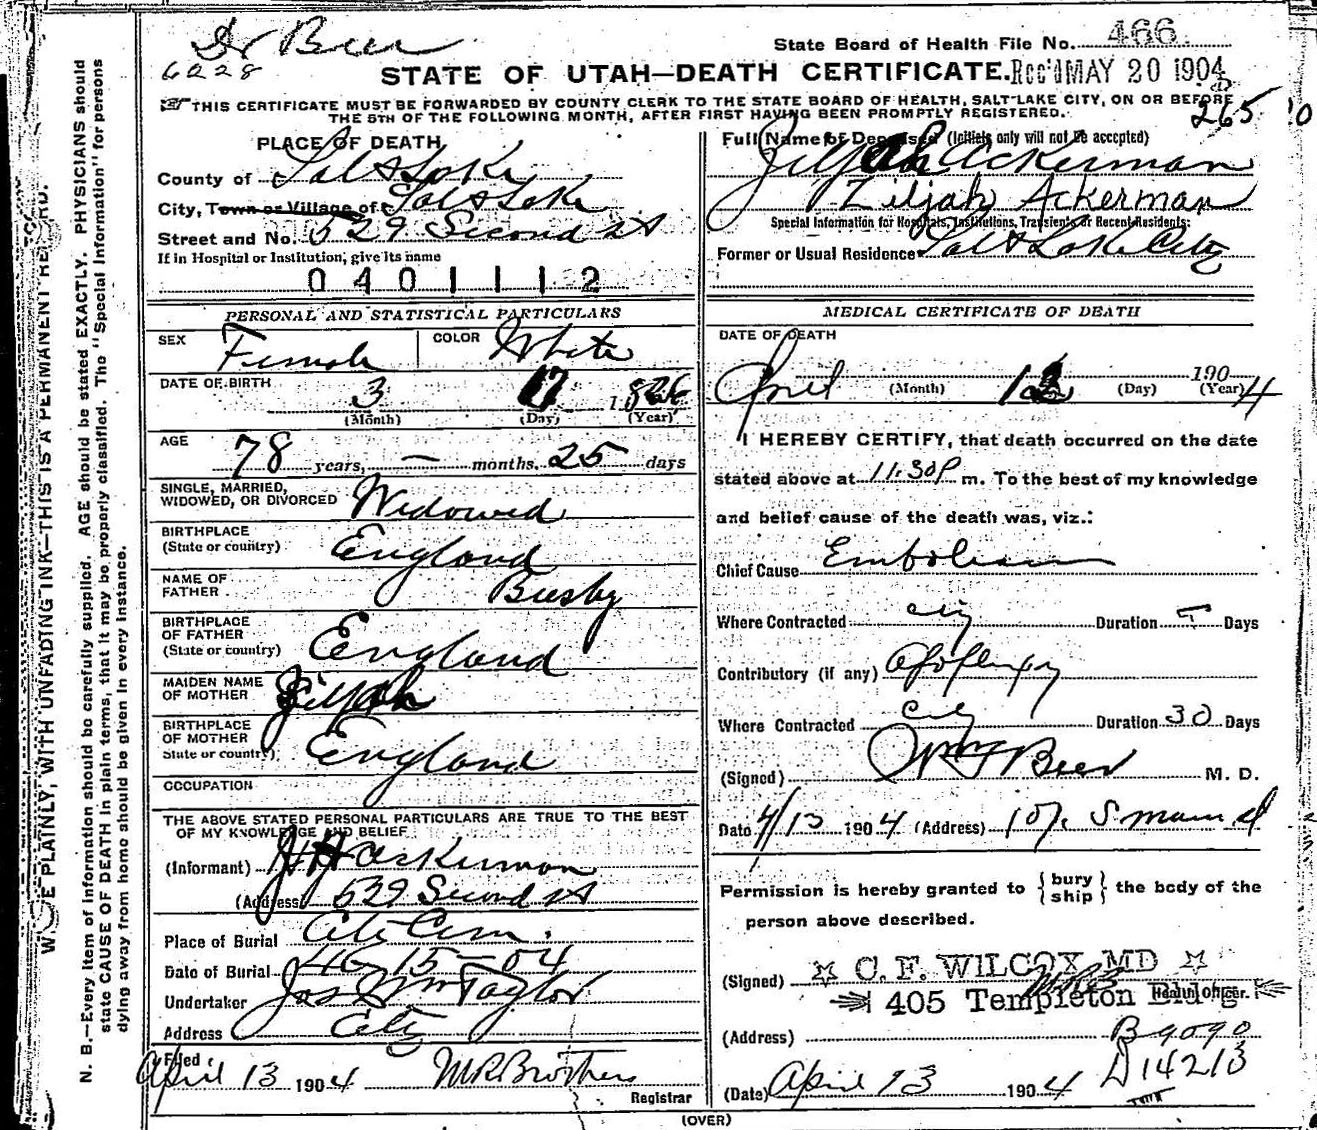 Dr Beer
6228
State Board of Health File No. 466
STATE OF UTAH—DEATH CERTIFICATE. Rec'd MAY 20 1904
THIS CERTIFICATE MUST BE FORWARDED BY COUNTY CLERK TO THE STATE BOARD OF HEALTH, SALT LAKE CITY, ON OR BEFORE
THE 5TH OF THE FOLLOWING MONTH, AFTER FIRST HAVING BEEN PROMPTLY REGISTERED.
265
PLACE OF DEATH
County of Salt Lake
City, Town or Village of Salt Lake
Street and No. 529 Second St
If in Hospital or Institution, give its name
0401112
Full Name of Deceased (Initials only will not be accepted)
Ziljah Ackerman
Ziljah Ackerman
Special Information for Hospitals, Institutions, Transients or Recent Residents:
Former or Usual Residence Salt Lake City
PERSONAL AND STATISTICAL PARTICULARS
SEX Female COLOR White
DATE OF BIRTH 3 17 1826
(Month) (Day) (Year)
AGE 78 years, — months, 25 days
SINGLE, MARRIED,
WIDOWED, OR DIVORCED Widowed
BIRTHPLACE
(State or country) England
NAME OF
FATHER Busby
BIRTHPLACE
OF FATHER
(State or country) England
MAIDEN NAME
OF MOTHER Ziljah
BIRTHPLACE
OF MOTHER
State or country) England
OCCUPATION
THE ABOVE STATED PERSONAL PARTICULARS ARE TRUE TO THE BEST
OF MY KNOWLEDGE AND BELIEF
(Informant) J H Ackerman
(Address 529 Second St
Place of Burial City Cem.
Date of Burial 4-15-04
Undertaker Jos Wm Taylor
Address City
Filed April 13 1904 M R Brothers
Registrar
MEDICAL CERTIFICATE OF DEATH
DATE OF DEATH
April 12 1904
(Month) (Day) (Year)
I HEREBY CERTIFY, that death occurred on the date
stated above at 11.30 P m. To the best of my knowledge
and belief cause of the death was, viz.:
Chief Cause Embolism
Where Contracted City Duration Days
Contributory (if any) Apoplexy
Where Contracted City Duration 30 Days
(Signed) Wm F Beer M. D.
Date 4/13 1904 (Address) 107 S main st
Permission is hereby granted to {bury ship} the body of the
person above described.
(Signed) C. F. WILCOX MD
405 Templeton Bldg Health Officer.
(Address) B9090
D14213
(Date) April 13 1904
(OVER)
W E PLAINLY, WITH UNFADING INK—THIS IS A PERMANENT RECORD.
N. B.—Every item of information should be carefully supplied. AGE should be stated EXACTLY. PHYSICIANS should
state CAUSE OF DEATH in plain terms, that it may be properly classified. The "Special Information" for persons
dying away from home should be given in every instance.